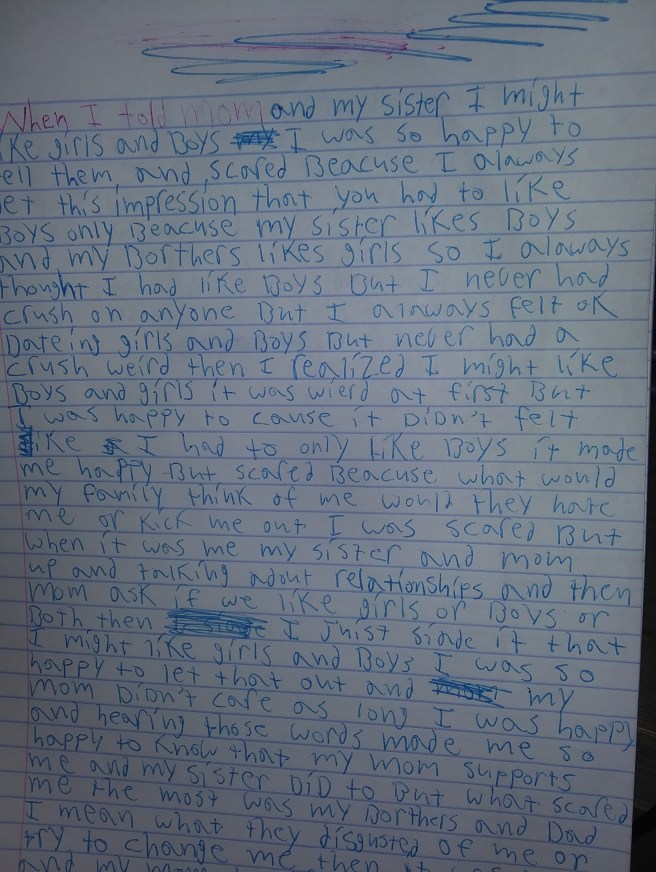 When I told mom and my sister I might
ike girls and Boys I was so happy to
ell them and scared Beacuse I alaways
et this impression that you had to like
Boys only Beacuse my sister likes Boys
and my Borthers likes girls so I alaways
thought I had like Boys But I never had
crush on anyone But I alaways felt ok
Dateing girls and Boys But never had a
crush weird then I realized I might like
Boys and girls it was wierd at first But
I was happy to cause it DiDn't felt
like I had to only like Boys it made
me happy But scared Beacuse what would
my family think of me would they hate
me or kick me out I was scared But
when it was me my sister and mom
up and talking adout relationships and then
mom ask if we like girls or Boys or
Both then I Jhist siade it that
I might like girls and Boys I was so
happy to let that out and my
mom DiDn't care as long I was happy
and hearing those words made me so
happy to know that my mom supports
me and my sister DiD to But what scared
me the most was my Borthers and Dad
I mean what they disgusted of me or
try to change me then it
and my mom